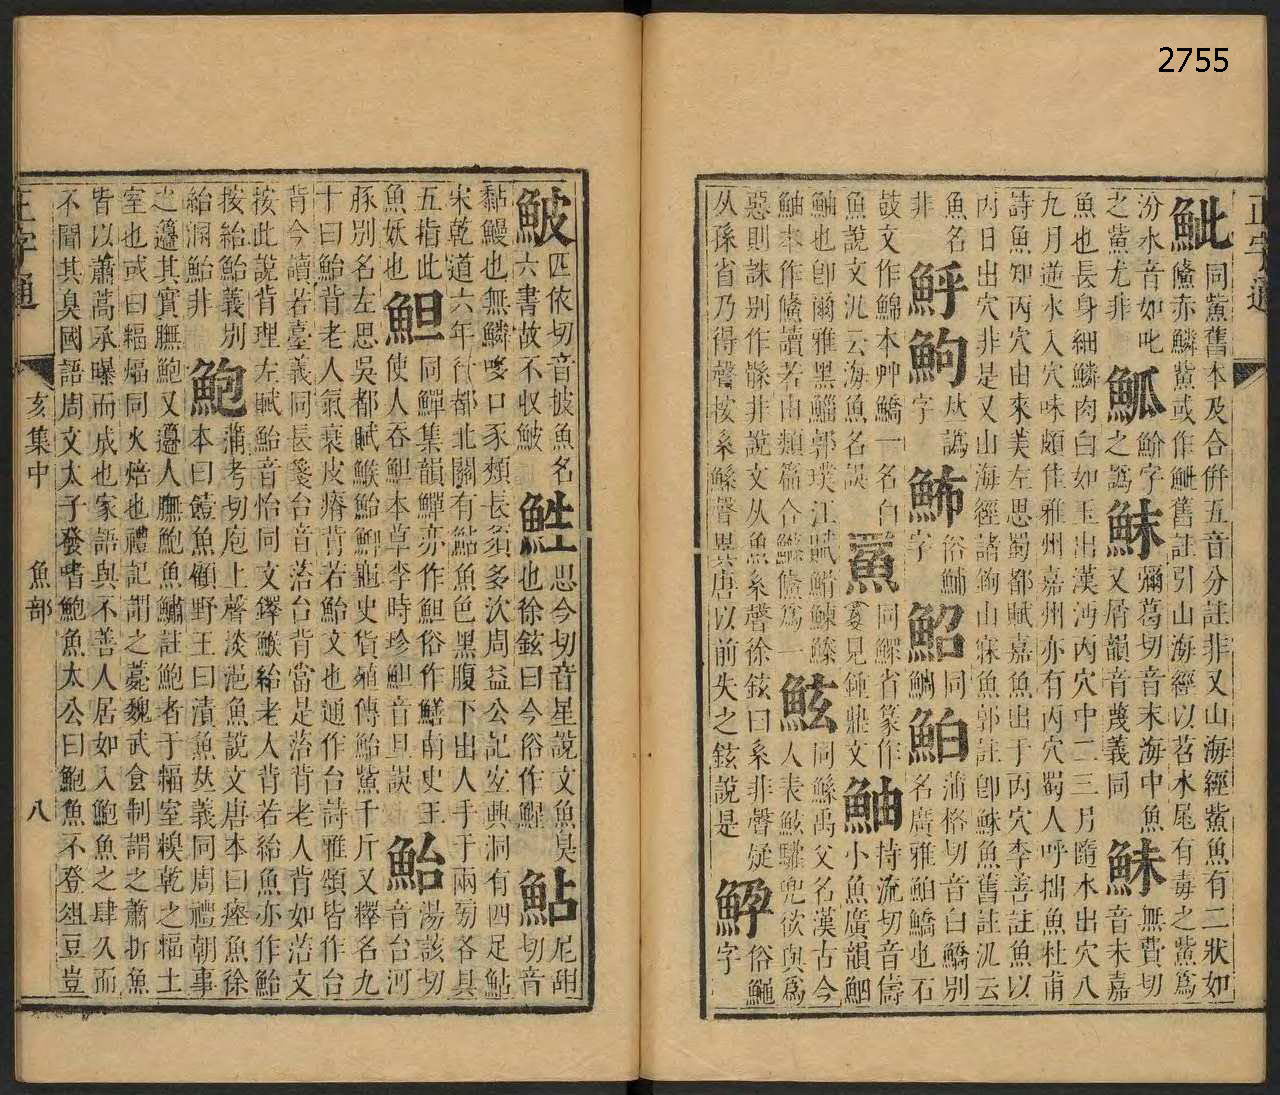 2755
正字通
鮆同鮤舊本及合併五音分註非又山海經鮆魚有二狀如
鯈亦鱗鮆或作魮舊註引山海經以苕水尾有毒之鮆爲
汾水音如叱
之鮆尤非 䱉魪字之譌 䱅彌葛切音末海中魚又屑韻音蔑義同 鮇無費切音未嘉
魚也長身細鱗肉白如玉出漢沔丙穴中二三月隨水出穴八
九月逆水入穴味頗佳雅州嘉州亦有丙穴蜀人呼拙魚杜甫
詩魚知丙穴由來美左思蜀都賦嘉魚出于丙穴李善註魚以
丙日出穴非是又山海經諸鉤山寐魚郭註卽鮇魚舊註汎云
魚名
非 魣 鮈𠀤譌字 鈽俗鯆字 鮉同鯛 鮊蒲格切音白鱎別名廣雅鮊鱎也石
鼓文作鰝本艸鱎一名白
魚說文汎云海魚名誤 䰽同鰥省篆作䍡見鍾鼎文 鮋持流切音儔小魚廣韻鮂
鮋也卽爾雅黑鰦郭璞江賦鰽鰊鰧
鮋本作鯈讀若由類篇合鰷鯈爲一 鮌同鯀禹父名漢古今人表鮌驩兜欲與爲
惡則誅別作骸非說文从魚系聲徐鉉曰系非聲疑
从孫省乃得聲按系鯀聲異唐以前失之鉉說是 䱋俗鮑字
鮍匹依切音披魚名六書故不收鮍 鮏思今切音星說文魚臭也徐鉉曰今俗作鯹 鮎尼甜切音
黏鰻也無鱗哆口豕頰長須多次周益公記宜興洞有四足鮎
宋乾道六年行都北關有鮎魚色黑腹下出人手于兩旁各具
五指此
魚妖也 䱇同鱓集韻鱓亦作䱇俗作鱔南史王使人吞䱇本草李時珍䱇音旦誤 鮐湯該切音台河
豚別名左思吳都賦鯸鮐鯽龜史貨殖傳鮐鮆千斤又釋名九
十曰鮐背老人氣衰皮瘠背若鮐文也通作台詩雅頌皆作台
背今讀若臺義同長箋台音落台背當是落背老人背如落文
按此說背理左賦鮐音怡同文鐸鯸鮐老人背若鮐魚亦作鮐
按給鮐義別
紿洞鮐非 鮑蒲考切庖上聲淡浥魚說文唐本曰瘞魚徐本曰饐魚顧野王曰漬魚𠀤義同周禮朝事
之籩其實膴鮑又籩人膴鮑魚鱐註鮑者于楅室糗乾之楅土
室也或曰楅煏同火焙也禮記謂之薧魏武食制謂之蕭折魚
皆以蕭蒿承曝而成也家語與不善人居如入鮑魚之肆久而
不聞其臭國語周文太子發嗜鮑魚太公曰鮑魚不登俎豆豈
正字通
亥集中 魚部 八